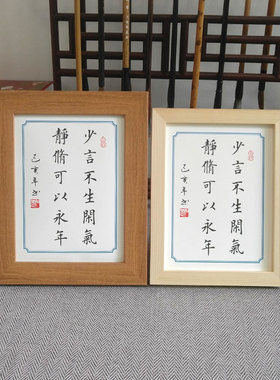 少言不生閑氣
靜脩可以永年
己亥年
少言不生閑氣
靜脩可以永年
己亥年